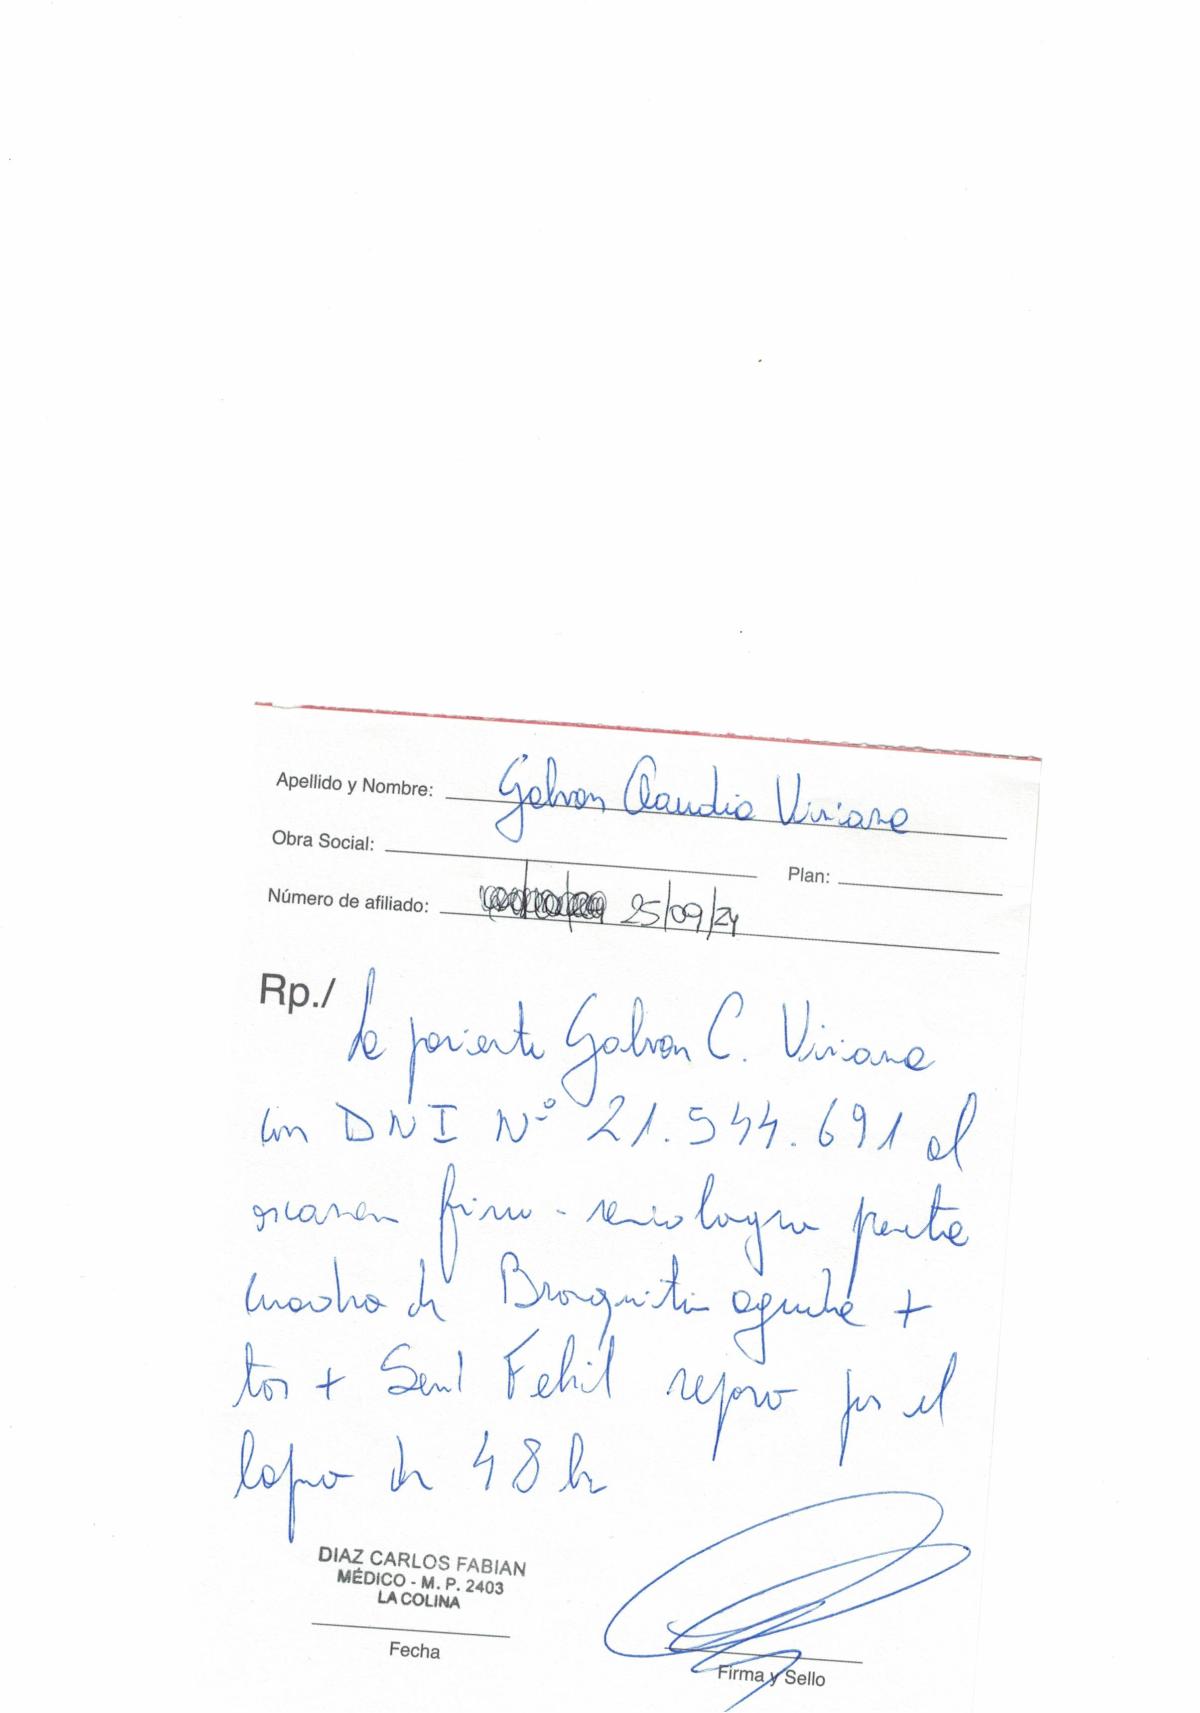 Apellido y Nombre: Galvan Claudia Viviana
Obra Social: Plan:
Número de afiliado: 25/09/24
Rp./ La paciente Galvan C. Viviana
con DNI Nº 21.544.691 al
examen fisico - semiologico presenta
cuadro de Bronquitis aguda +
tos + Send Febril reposo por el
lapso de 48 hs
DIAZ CARLOS FABIAN
MÉDICO - M. P. 2403
LA COLINA
Fecha
Firma y Sello